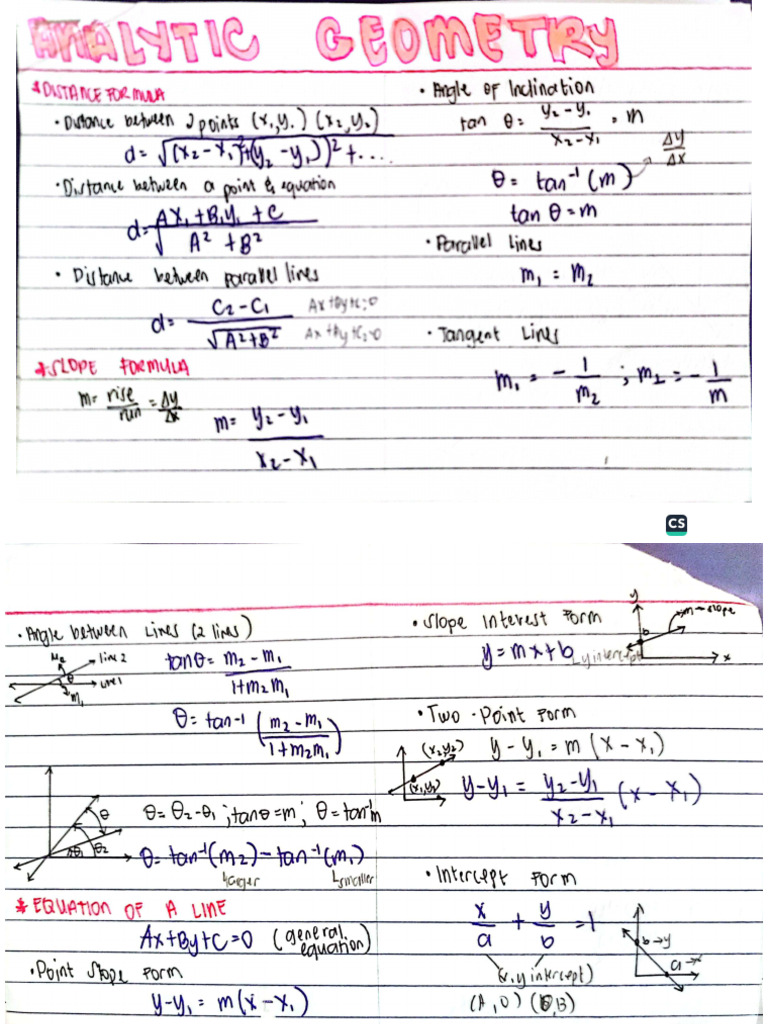 ANALYTIC GEOMETRY
* DISTANCE FORMULA
• Distance between 2 points (x₁,y₁) (x₂,y₂)
d= √(x₂-x₁)²+(y₂-y₁))²+....
• Distance between a point & equation
d= Ax₁+B₁y₁+C / √A²+B²
• Distance between parallel lines
d= C₂-C₁ / √A²+B²
Ax+By+C=0
Ax+By+C₂=0
* SLOPE FORMULA
m= rise/run = Δy/Δx
m= y₂-y₁ / x₂-x₁
• Angle of Inclination
tan θ= y₂-y₁ / x₂-x₁ = m
Δy/Δx
θ= tan⁻¹(m)
tan θ=m
• Parallel Lines
m₁ = m₂
• Tangent Lines
m₁ = - 1/m₂ ; m₂ = - 1/m
CS
• Angle between Lines (2 lines)
M₂
line 2
θ
Line 1
m₁
tanθ= m₂-m₁ / 1+m₂m₁
θ= tan-1 (m₂-m₁ / 1+m₂m₁)
θ
θ₁
θ₂
θ= θ₂-θ₁ ; tanθ=m ; θ=tan⁻¹m
θ= tan⁻¹(m₂)-tan⁻¹(m₁)
larger
smaller
* EQUATION OF A LINE
Ax+By+C=0 (general equation)
• Point Slope Form
y-y₁ = m(x-x₁)
• Slope Interest Form
y=mx+b
y intercept
y
m→slope
b
x
• Two-Point Form
(x₂,y₂)
(x₁,y₁)
y-y₁ = m(x-x₁)
y-y₁ = y₂-y₁ / x₂-x₁ (x-x₁)
• Intercept Form
x/a + y/b =1
(x,y intercept)
(A,0) (0,B)
b→y
a→x